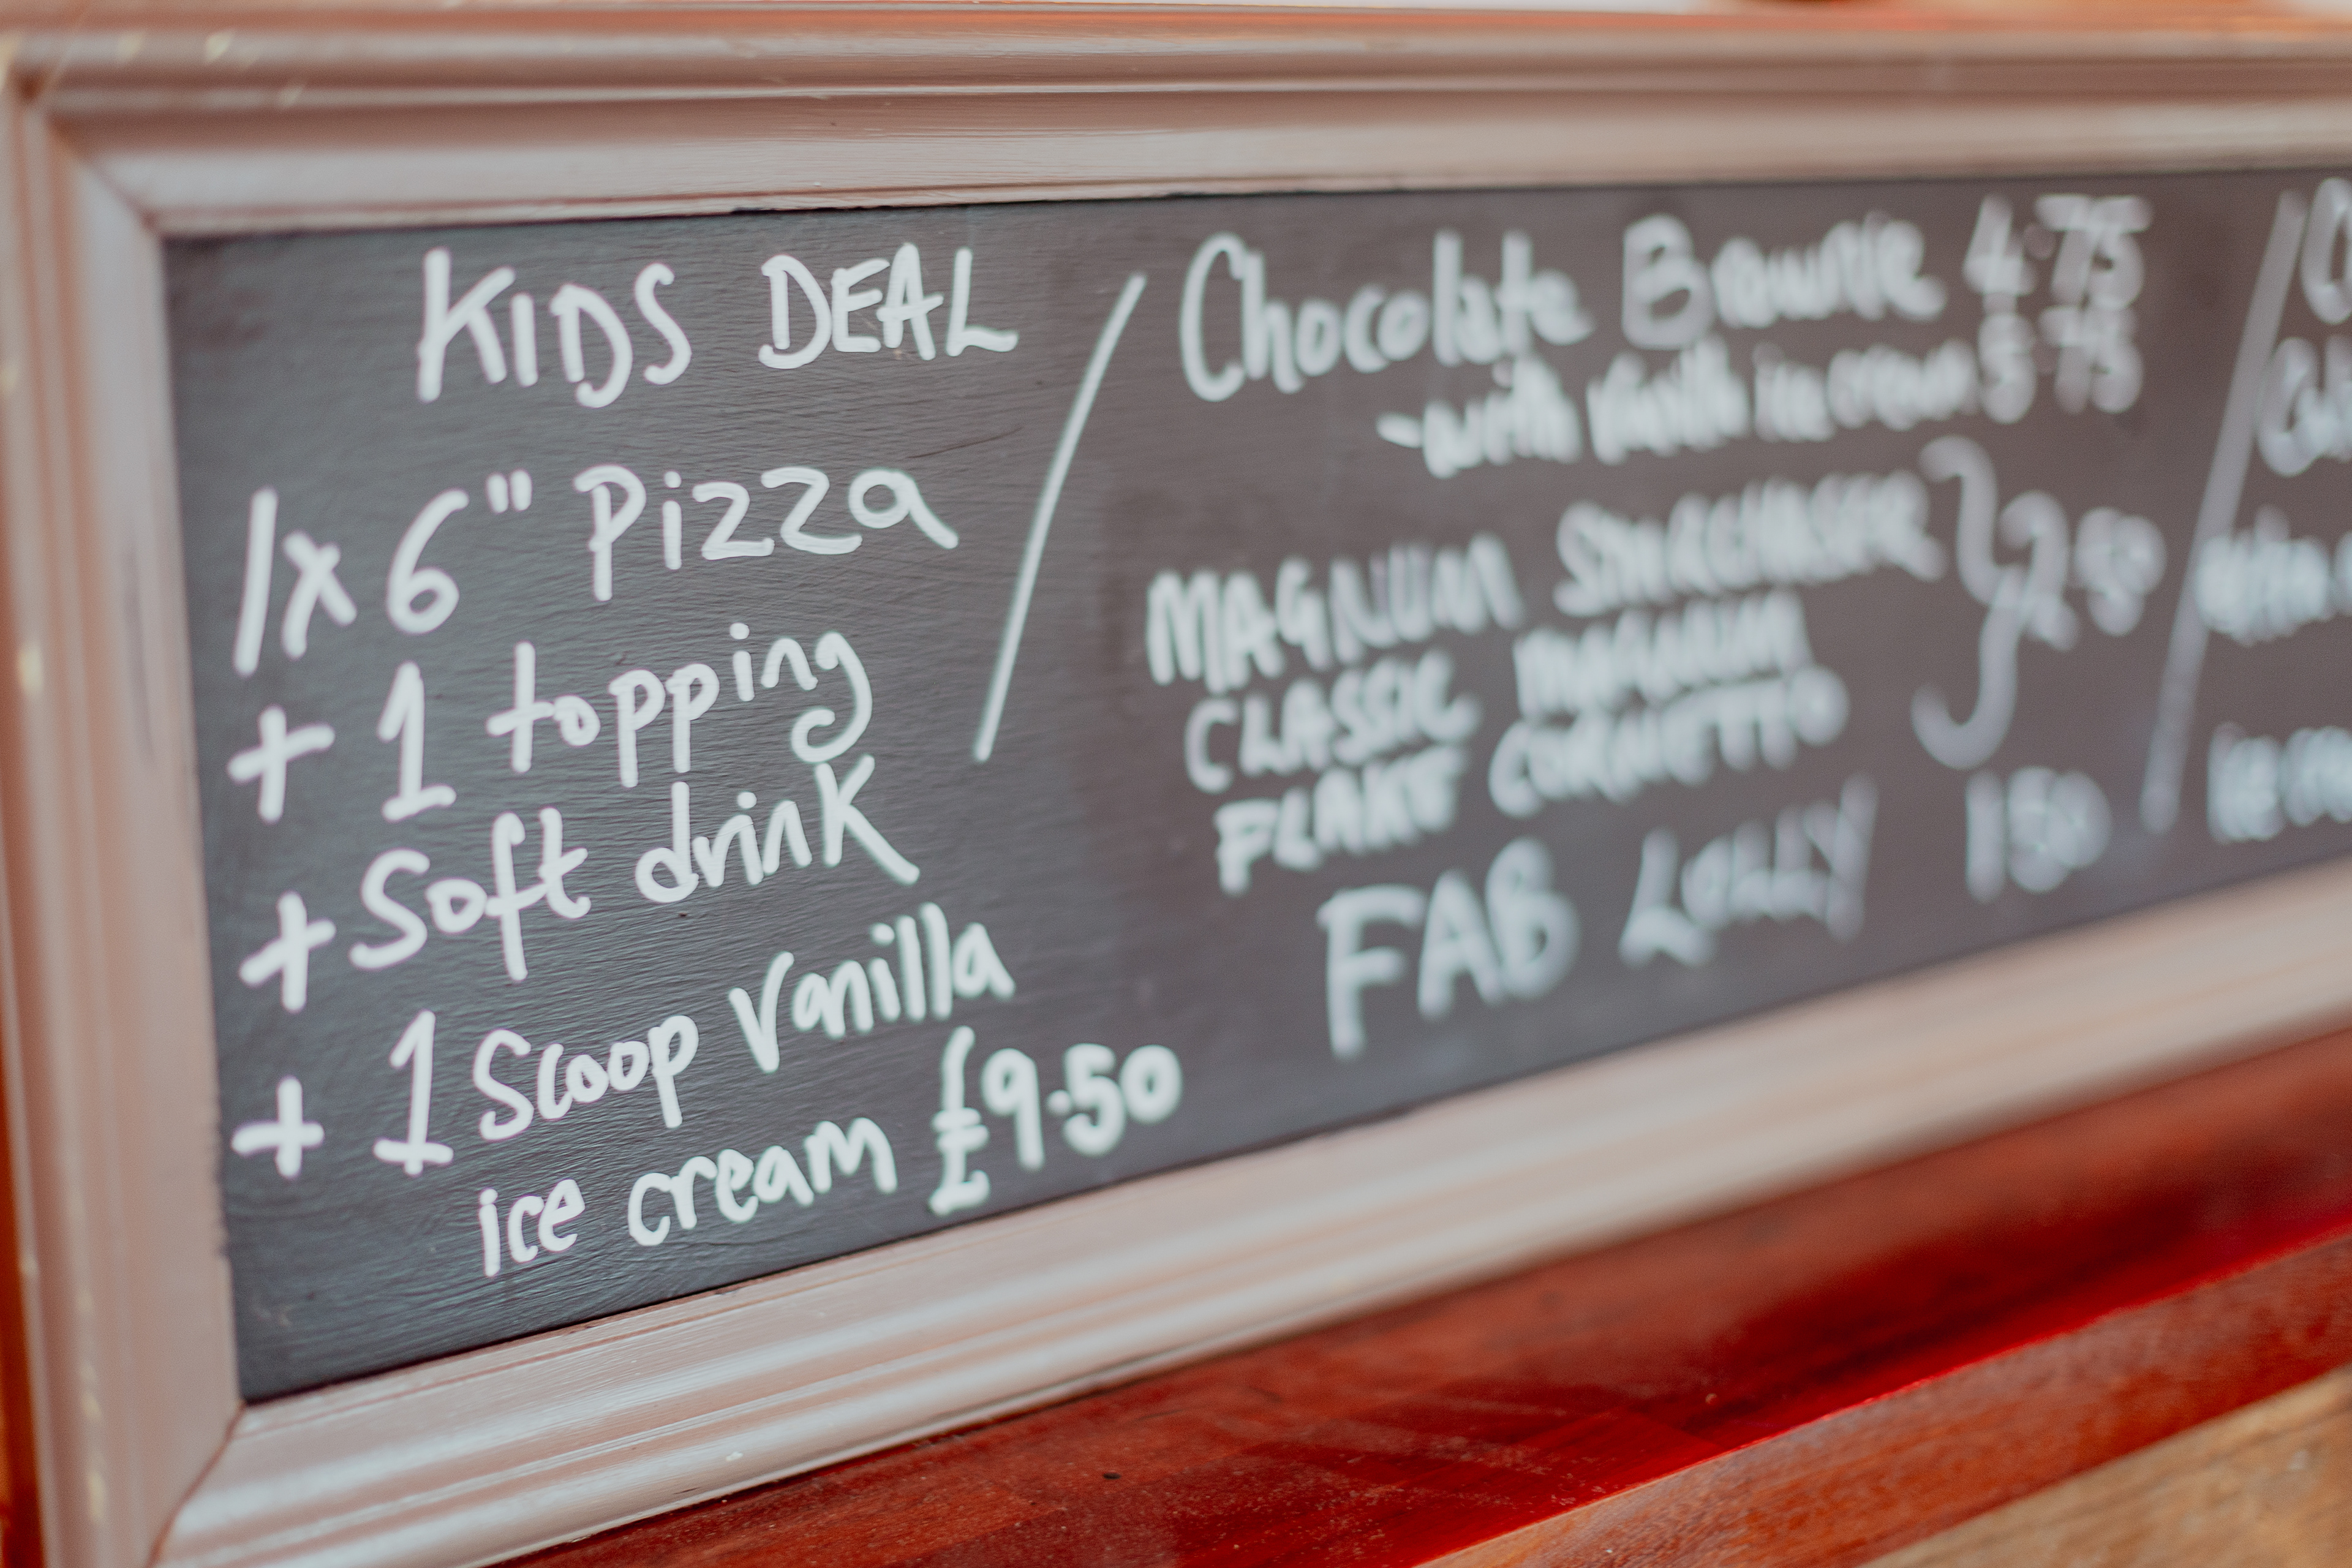 KIDS DEAL
1x 6" Pizza
+ 1 topping
+ Soft drink
+ 1 Scoop Vanilla
ice cream £9.50
Chocolate Brownie 4.75
- with Vanilla ice cream 5.75
MAGNUM STARCHASER
CLASSIC MAGNUM
FLAKE CORNETTO
2.80
FAB LOLLY 150